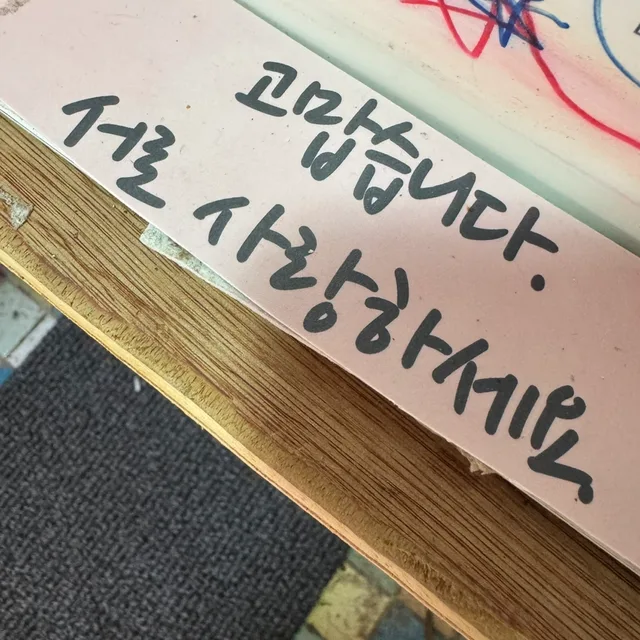 고맙습니다.
서로 사랑하세요.